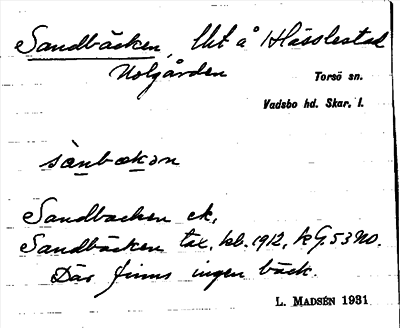 Sandbäcken, lht å Hässlestad
Nolgården
Torsö sn.
Vadsbo hd. Skar. l.
sànbækən
Sandbacken ek,
Sandbäcken tax, kb. 1912, kG. 53 NO.
Där finns ingen bäck.
L. MADSÉN 1931